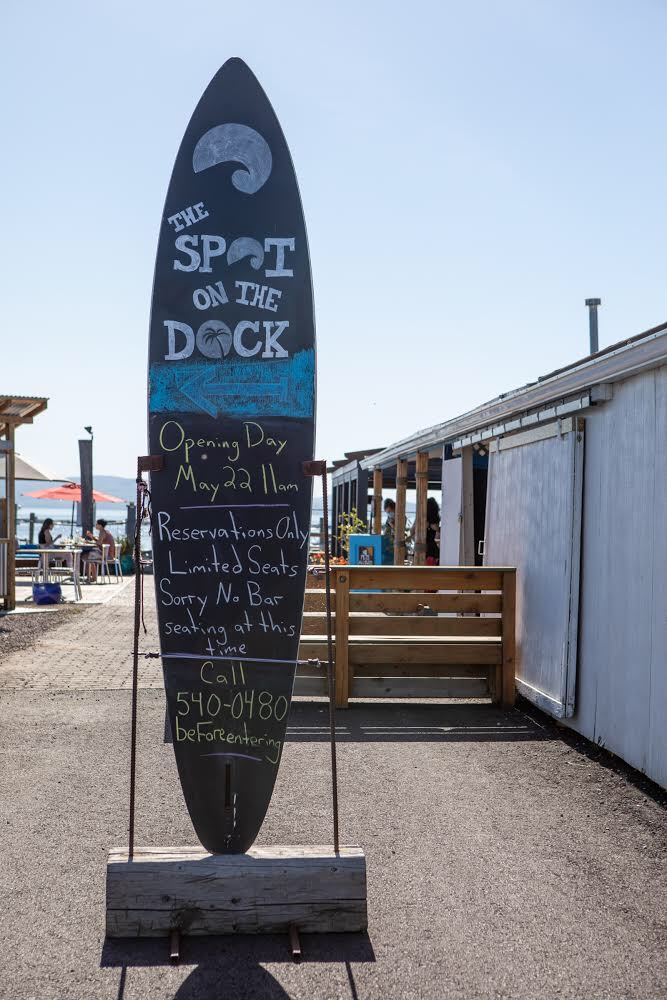 THE
SPOT
ON THE
DOCK
Opening Day
May 22 11am
Reservations Only
Limited Seats
Sorry No Bar
seating at this
time
Call
540-0480
beFore entering